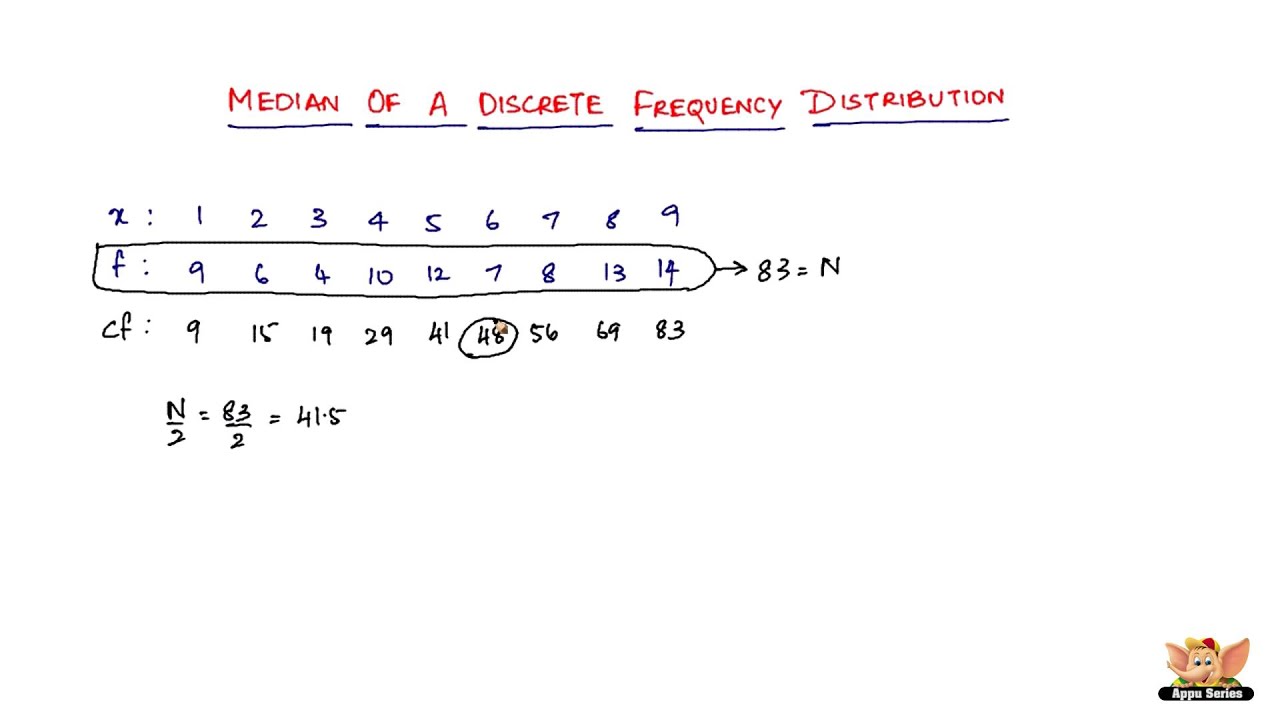 MEDIAN OF A DISCRETE FREQUENCY DISTRIBUTION
x : 1 2 3 4 5 6 7 8 9
f : 9 6 4 10 12 7 8 13 14 → 83 = N
cf : 9 15 19 29 41 48 56 69 83
N/2 = 83/2 = 41.5
Appu Series